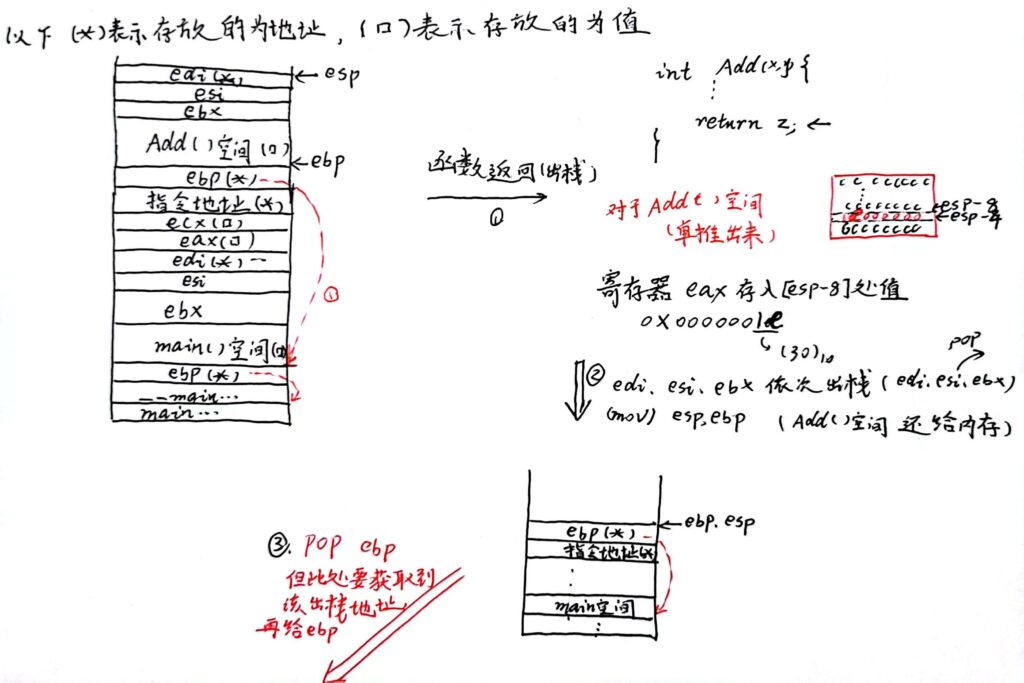 以下 (*)表示存放的为地址，(口)表示存放的为值
edi(*)
←esp
esi
ebx
Add()空间(口)
←ebp
ebp(*)
指令地址(*)
ecx(口)
eax(口)
edi(*)
esi
ebx
main()空间(口)
ebp(*)
__main...
main...
①
函数返回(出栈)
①
int Add(x,y){
return z; ←
}
对于Add()空间
(单推出来)
cc cccccc
cccccccc
←esp-8
←esp-4
cccccccc
寄存器 eax 存入[esp-8]处值
0x0000001e
(30)10
② edi、esi、ebx 依次出栈 (edi、esi、ebx)
pop
(mov) esp,ebp (Add()空间 还给内存)
←ebp、esp
ebp(*)
指令地址(*)
main空间
③. pop ebp
但此处要获取到
该出栈地址,
再给ebp